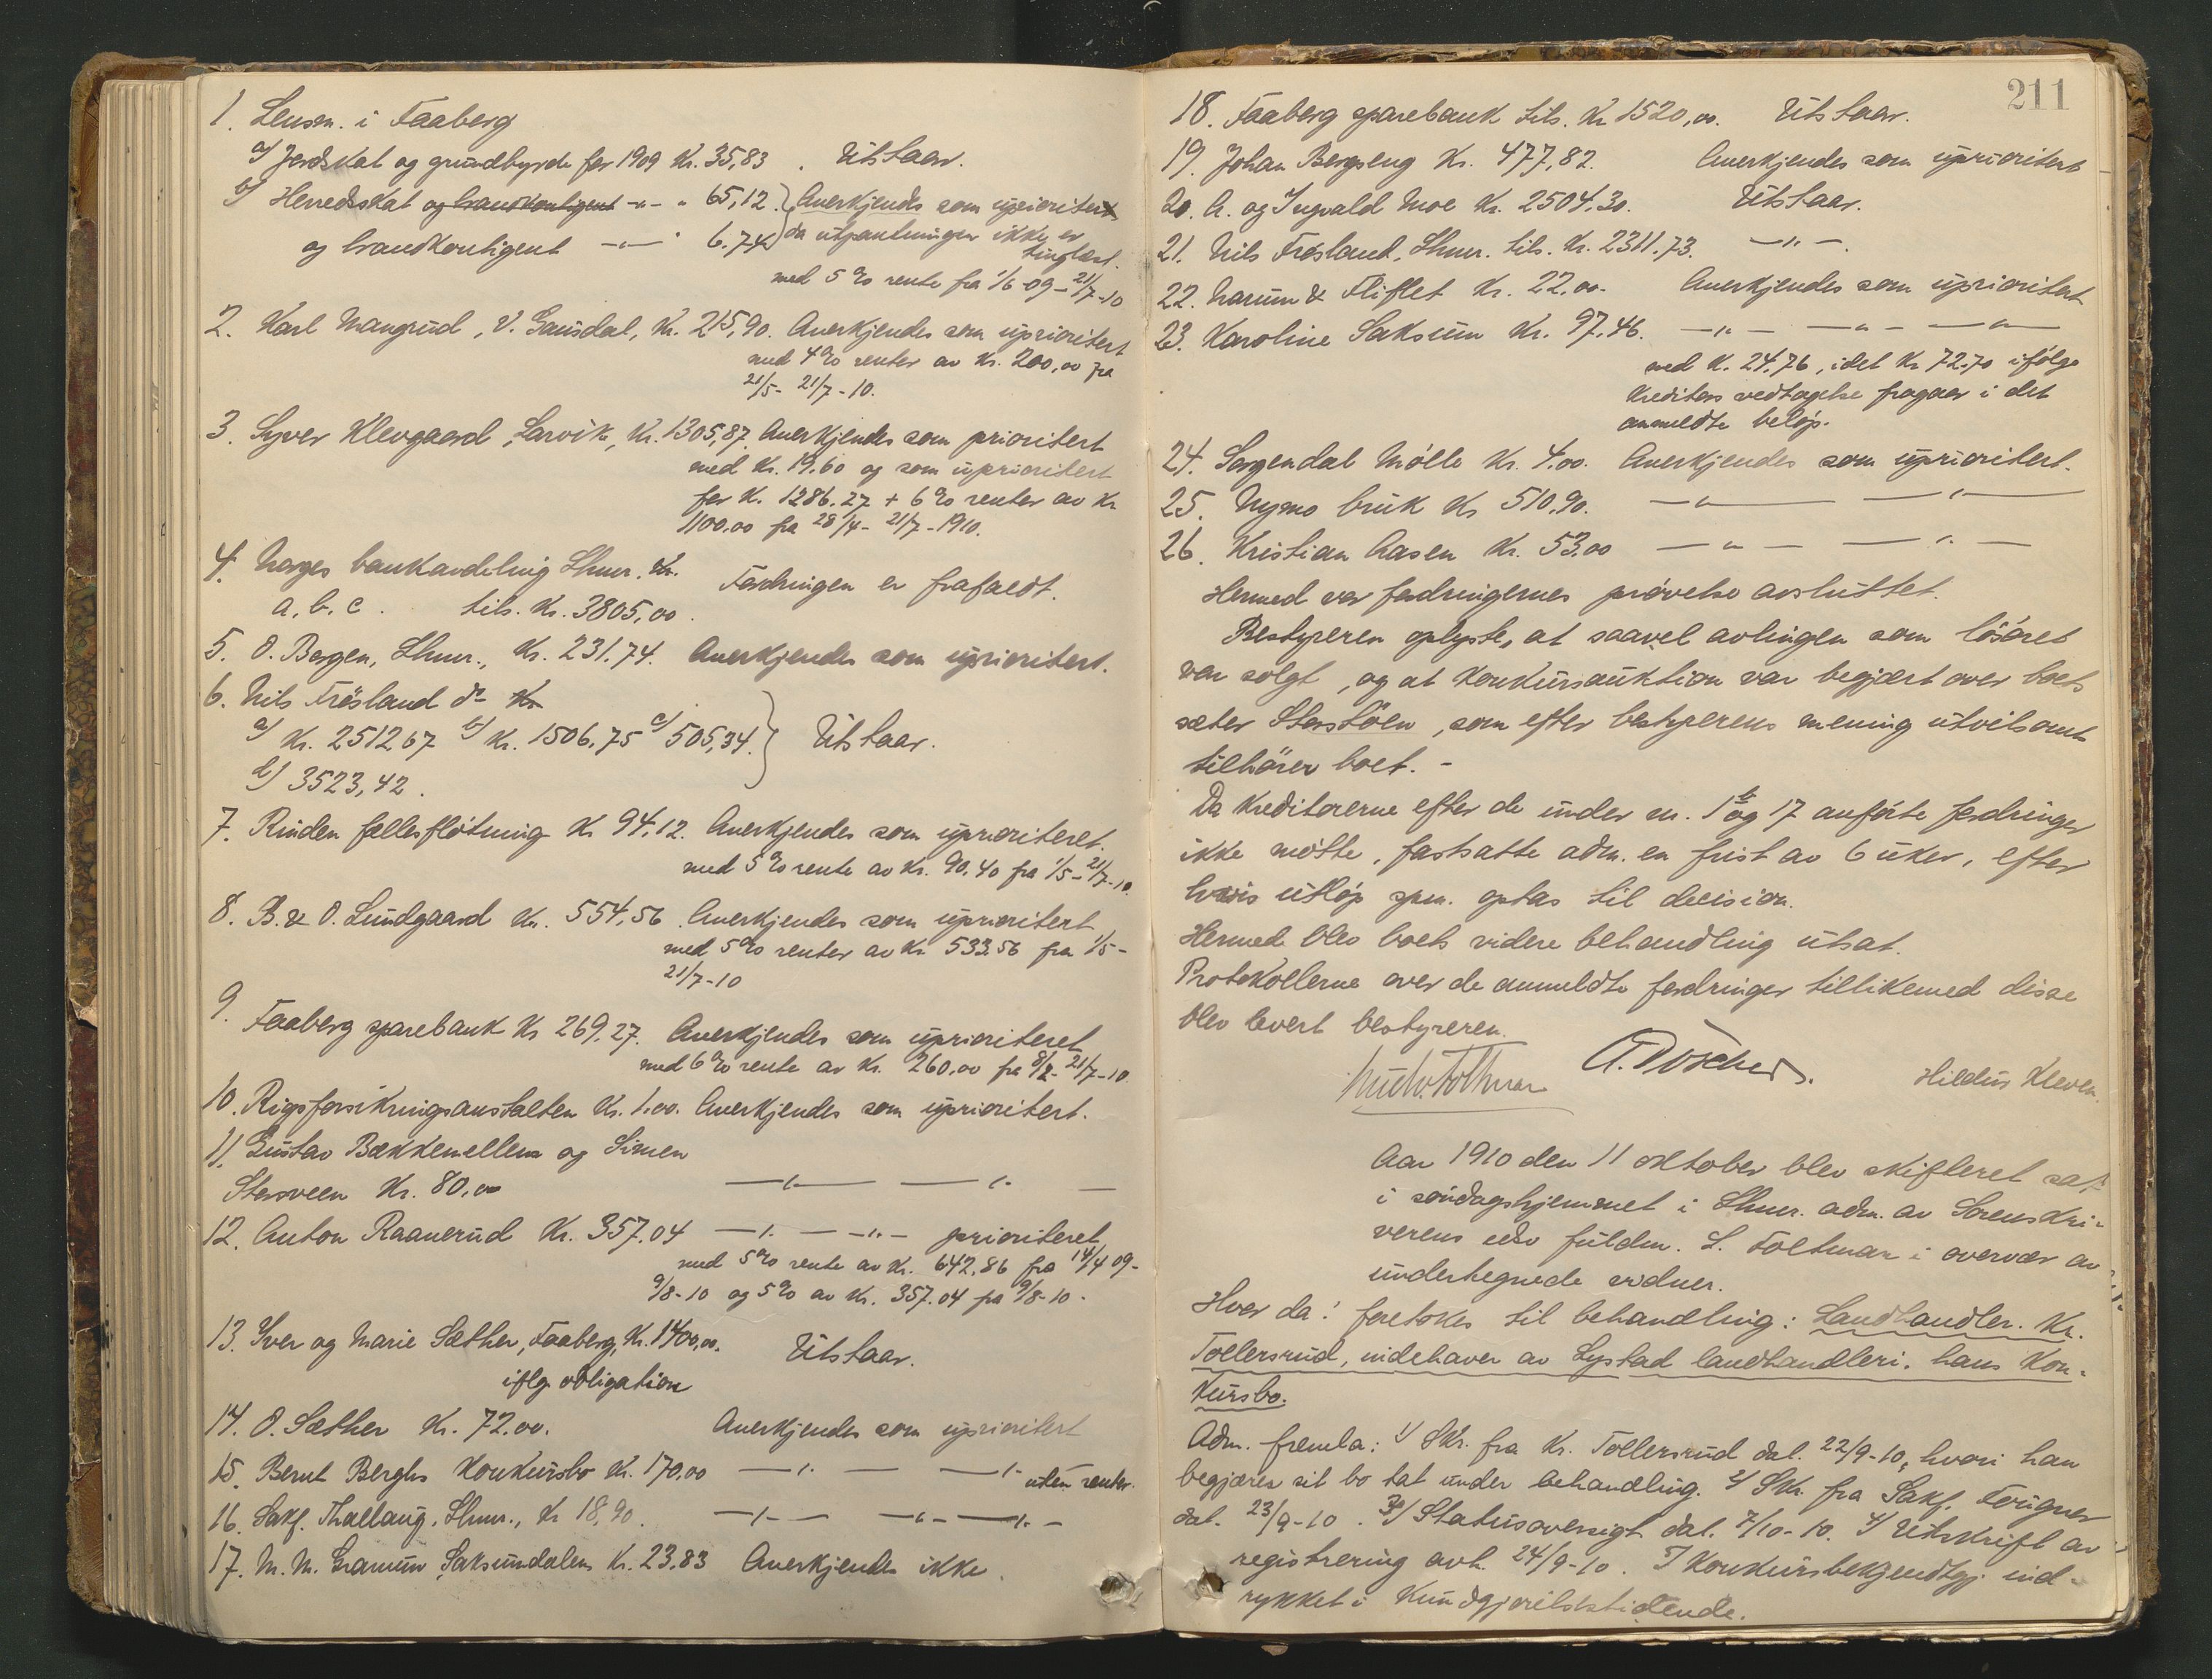 1. Lensm. i Faaberg
a/ Jordskat og grundbyrde for 1909 Kr. 35,83. Utstaar.
b/ Herredskat og brandkontigent -"- " 65,12. Anerkjendes som uprioritert
og brandkontigent -"- " 6.74 da utpantningen ikke er
tinglæst.
med 5 % rente fra 1/6-09-21/7-10
2. Karl Mangrud, V. Gausdal, Kr. 215,90. Anerkjendes som uprioritert
med 4 % renter av Kr. 200,00 fra
21/5-21/7-10.
3. Syver Klevgaard, Larvik, Kr. 1305,87. Anerkjendes som prioritert
med Kr. 19.60 og som uprioritert
for K. 1286.27 + 6 % renter av Kr
1100.00 fra 28/4-21/7-1910.
4. Norges bankavdeling Lhmr. Kr.
a, b, c. tils. Kr. 3805,00. Fordringen er frafaldt.
5. O. Bergen, Lhmr., Kr. 231.74. Anerkjendes som uprioritert.
6. Nils Frøsland do Kr
a/ Kr. 2512 67 b/ Kr. 1506.75 c/ 505,34. Utstaar.
d/ 3523,42.
7. Rinden fællesfløtning K 94.12. Anerkjendes som uprioriteret.
med 5 % rente av Kr. 90.40 fra 1/5-21/7-10.
8. B. & O. Lundgaard Kr. 554,56. Anerkjendes som uprioritert
med 5 % renter av Kr 533.56 fra 1/5-
21/7-10
9. Faaberg sparebank Kr 269.27. Anerkjendes som uprioriteret
med 6 % rente av Kr. 260.00 fra 8/2-21/7-10
10. Rigsforsikringsanstalten Kr. 1.00. Anerkjendes som uprioritert.
11. Gustav Bækkemellem og Simen
Storsveen Kr. 80,00 -"- -"- -
12. Anton Raanerud Kr. 357.04 -"- -"- prioriteret
med 5 % rente av Kr. 642,86 fra 14/4 09-
9/8-10 og 5 % av Kr. 357.04 fra 9/8-10-
13. Iver og Marie Sæther, Faaberg, Kr. 1400,00. Utstaar.
iflg obligation
14. O. Sæther Kr. 72.00. Anerkjendes som uprioritert
15. Bernt Berghs Konkursbo Kr. 170,00 -"- -"- uten renter.
16. Sakf. Thallaug, Lhmr., Kr 18,90. -"- -"- -"-
17. M. M. Saksumdalen Kr. 23.83 Anerkjendes ikke.
211
18. Faaberg sparebank tils. Kr 1520,00. Utstaar.
19. Johan Bergseng Kr. 477,82. Anerkjendes som uprioritert
20. A. og Ingvald Moe Kr. 2504.30. Utstaar.
21. Nils Frøsland, Lhmr. tils. Kr. 2311.73. -"-.
22. Narum & Fliflet Kr. 22,00. Anerkjendes som uprioritert
23. Karoline Saksum Kr. 97.46. -"- -"- -"-
med K. 24.76, idet Kr 72.70 ifølge
Kreditors vedtagelse fragaar i det
anmeldte beløp.
24. Sorgendal Mølle Kr. 4.00. Anerkjendes som uprioritert.
25. Nymo bruk Kr 510.90. -"- -"-
26. Kristian Aasen Kr. 53.00 -"- -"-
Hermed var fordringernes prøvelse avsluttet.
Bestyreren oplyste, at saavel avlingen som løsøret
var solgt, og at konkursauktion var begjært over boets
sæter Storstöen, som efter bestyrerens mening utvilsomt
tilhører boet. -
Da Kreditorerne efter de under nr. 1 b og 17 anførte fordringer
ikke møtte, fastsatte adm. en frist av 6 uker, efter
hvis utløp spm. optas til decision.
Hermed blev boets videre behandling utsat.
Protokollerne over de anmeldte fordringer tillikemed disse
blev levert bestyreren.
A. Hildus Kleven.
Aar 1910 den 11 oktober blev skifteret sat
i søndagshjemmet i Lhmr. adm. av Sorenskri-
verens edsv fuldm. L. Foltmar i overvær av
undertegnede vidner.
Hvor da: foretokes til behandling: Landhandler. Kr.
Tollersrud, indehaver av Lystad landhandleri. hans Kon-
kursbo.
Adm. fremla: 1/ Skr. fra Kr. Tollersrud dat. 22/9-10, hvori han
begjærer sit bo tat under behandling. 2/ Skr. fra Sakf.
dat. 23/9-10. 3/ Statusoversigt dat. 7/10-10. 4/ Utskrift av
registrering avh. 24/9-10. 5 Konkursbekjendtgj. ind-
rykket i Kundgjørelsestidende.